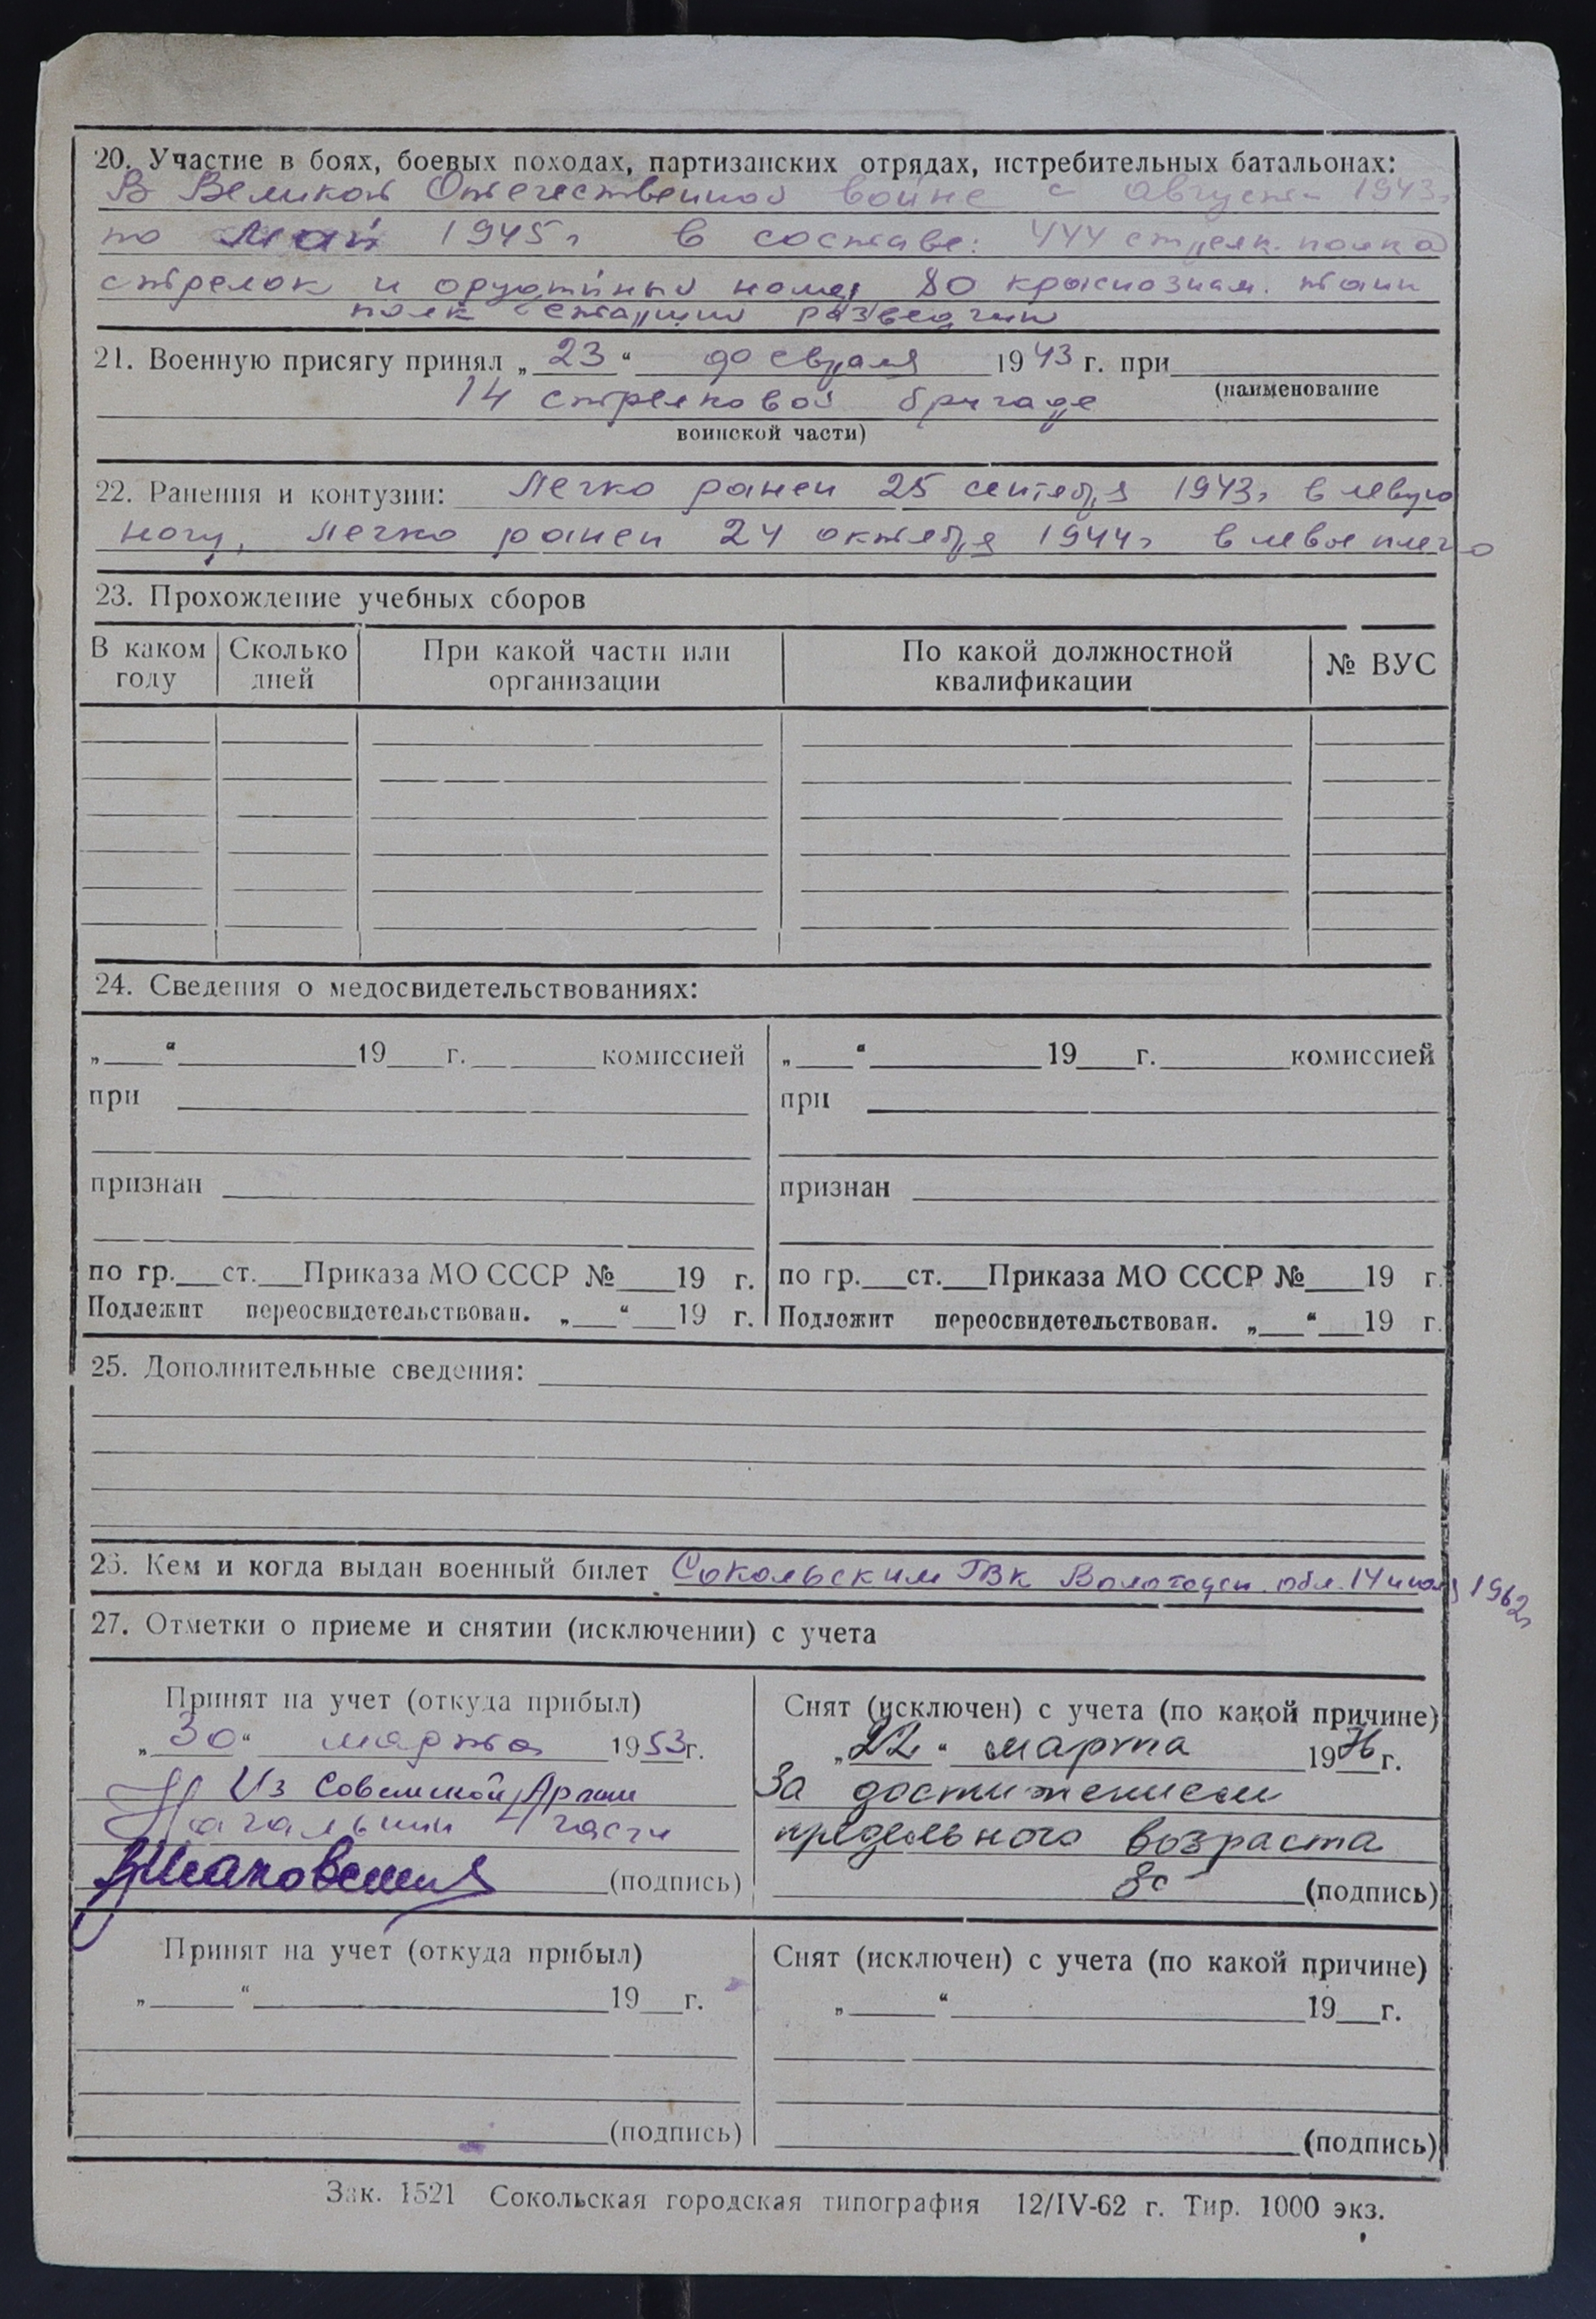 20. Участие в боях, боевых походах, партизанских отрядах, истребительных батальонах:
В Великой Отечественной войне с августа 1943 г
по май 1945 г в составе: 444 стрелк. полка
стрелок и орудийный номер 80 краснознам. танк
полк старший разведчик
21. Военную присягу принял „23“ февраля 1943 г. при
14 стрелковой бригаде
(наименование
воинской части)
22. Ранения и контузии: Легко ранен 25 сентября 1943 г в левую
ногу, легко ранен 24 октября 1944 г в левое плечо
23. Прохождение учебных сборов
В каком году Сколько дней При какой части или организации По какой должностной квалификации № ВУС
24. Сведения о медосвидетельствованиях:
„ “ 19 г. комиссией
при
признан
по гр. ст. Приказа МО СССР № 19 г.
Подлежит переосвидетельствован. „ “ 19 г.
„ “ 19 г. комиссией
при
признан
по гр. ст. Приказа МО СССР № 19 г.
Подлежит переосвидетельствован. „ “ 19 г.
25. Дополнительные сведения:
26. Кем и когда выдан военный билет Сокольским ГВК Вологодск. обл. 14 июля 1962 г
27. Отметки о приеме и снятии (исключении) с учета
Принят на учет (откуда прибыл)
„30“ марта 1953 г.
Из Советской Армии
Начальник 4 части
(подпись)
Снят (исключен) с учета (по какой причине)
„22“ марта 1976 г.
За достижением
предельного возраста
(подпись)
Принят на учет (откуда прибыл)
„ “ 19 г.
(подпись)
Снят (исключен) с учета (по какой причине)
„ “ 19 г.
(подпись)
Зак. 1521 Сокольская городская типография 12/IV-62 г. Тир. 1000 экз.